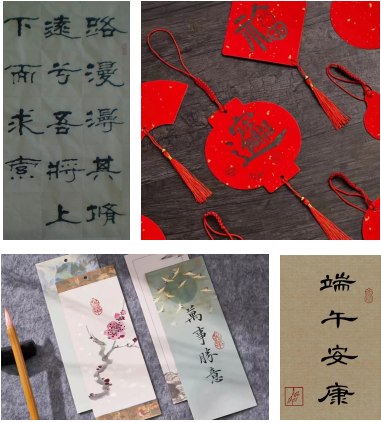 路漫漫其脩
遠兮吾將上
下而求索
福
招財進寶
萬事勝意
端午安康